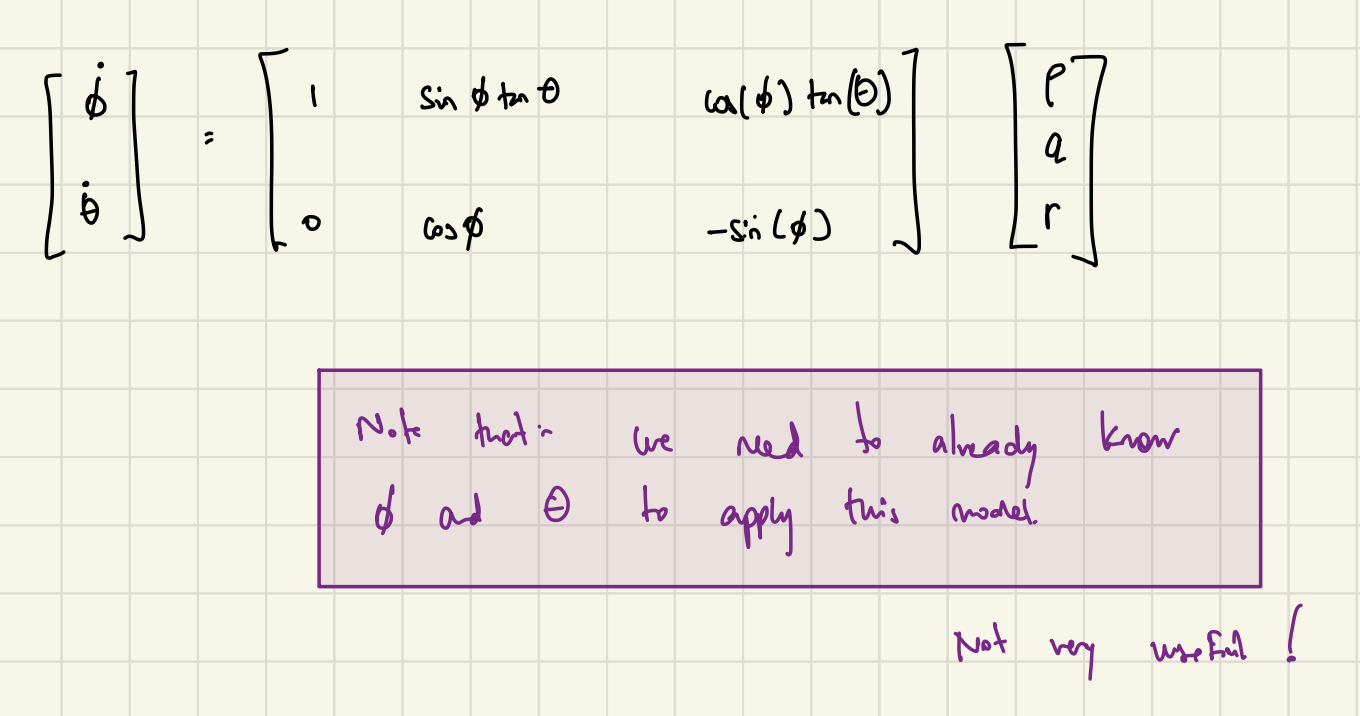 [ϕ̇ θ̇] = [1 sin ϕ tan θ cos(ϕ) tan(θ) ; 0 cos ϕ -sin(ϕ)] [p q r]
Note that:- we need to already know
ϕ and θ to apply this model.
Not very useful!